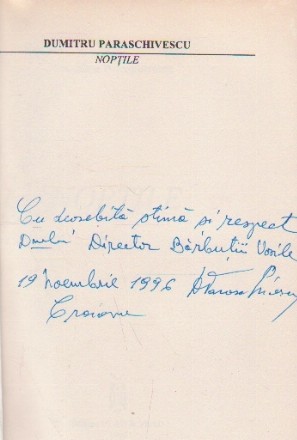 DUMITRU PARASCHIVESCU
NOPȚILE
Cu deosebită stimă și respect
Director Bărbuții Vasile
19 noembrie 1996
Craiova